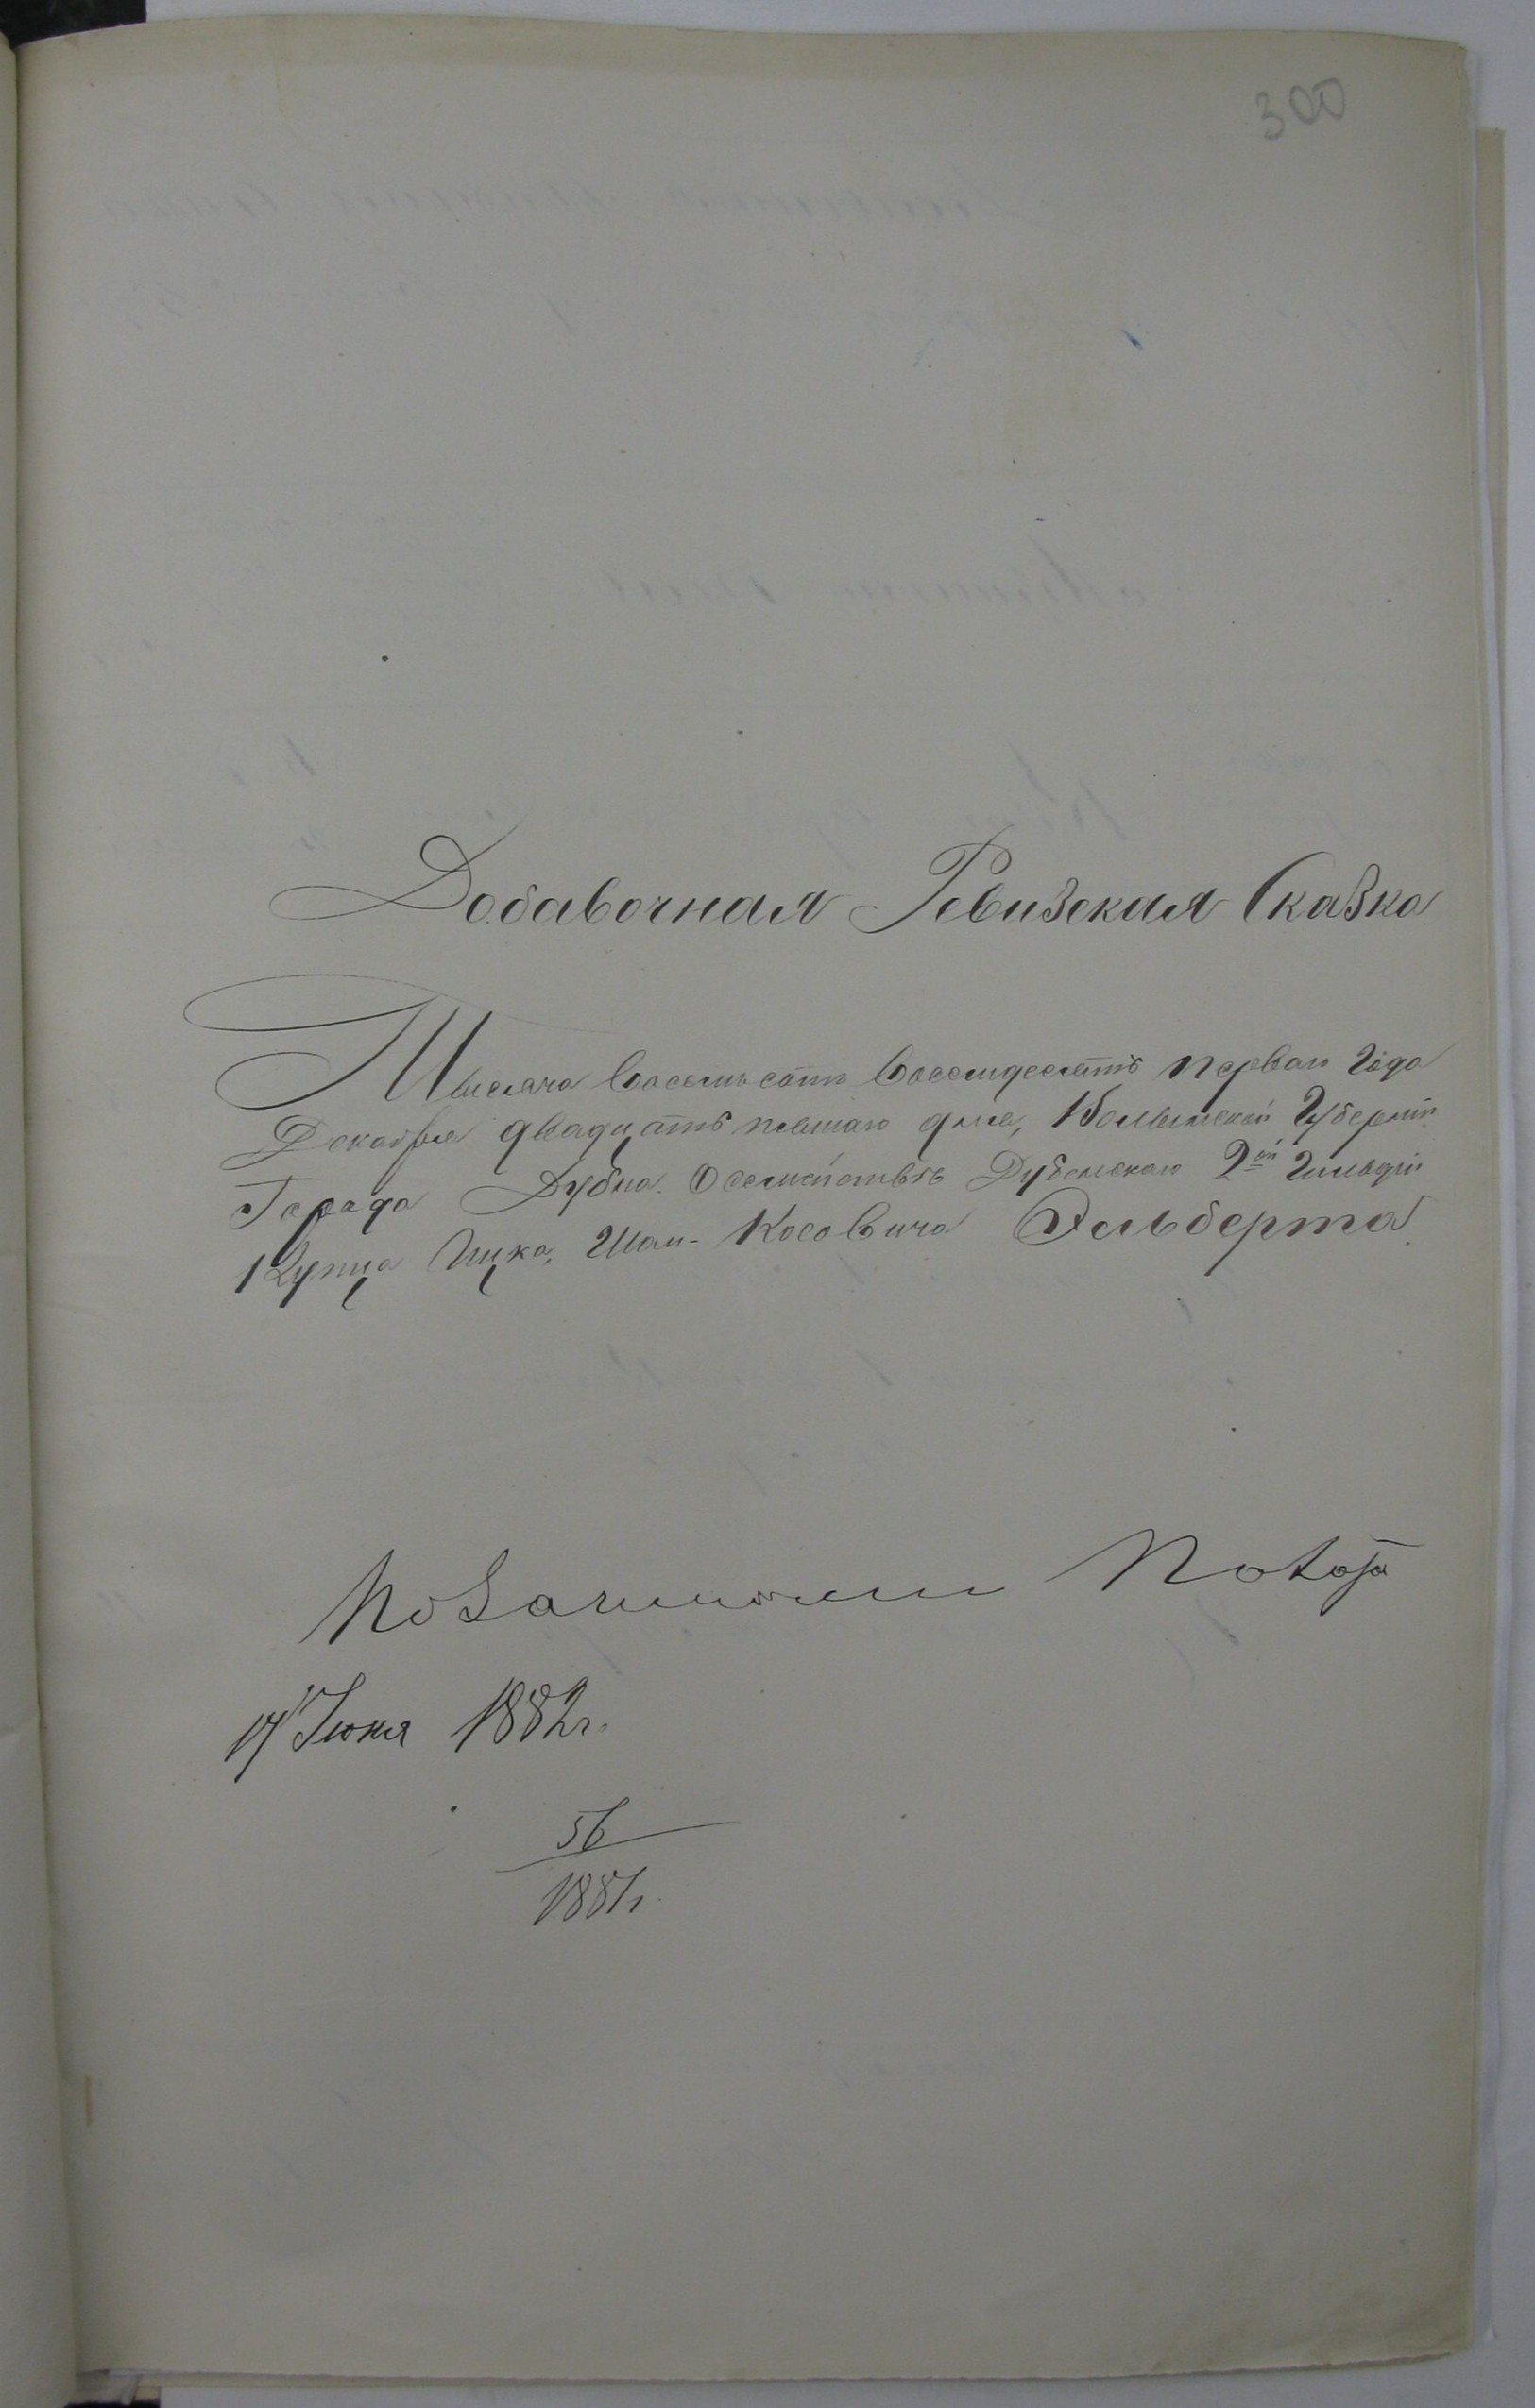 300
Добавочная Ревизская Сказка
Тысяча восемьсотъ восемдесятъ перваго года
Декабря двадцать пятаго дня, Волынской Губерніи
Города Дубна. О семѣйствѣ Дубенскаго 2ой Гильдіи
Купца Ицка, Шан-Косовича Эльберта
17 Іюня 1882 г.
56
1881 г.